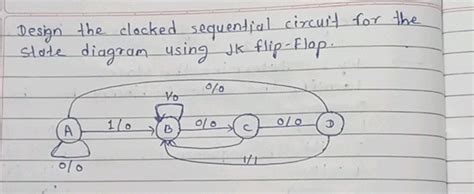 Design the clocked sequential circuit for the
state diagram using JK flip-flop.
0/0
1/0
A 1/0 B 0/0 C 0/0 D
0/0
1/1